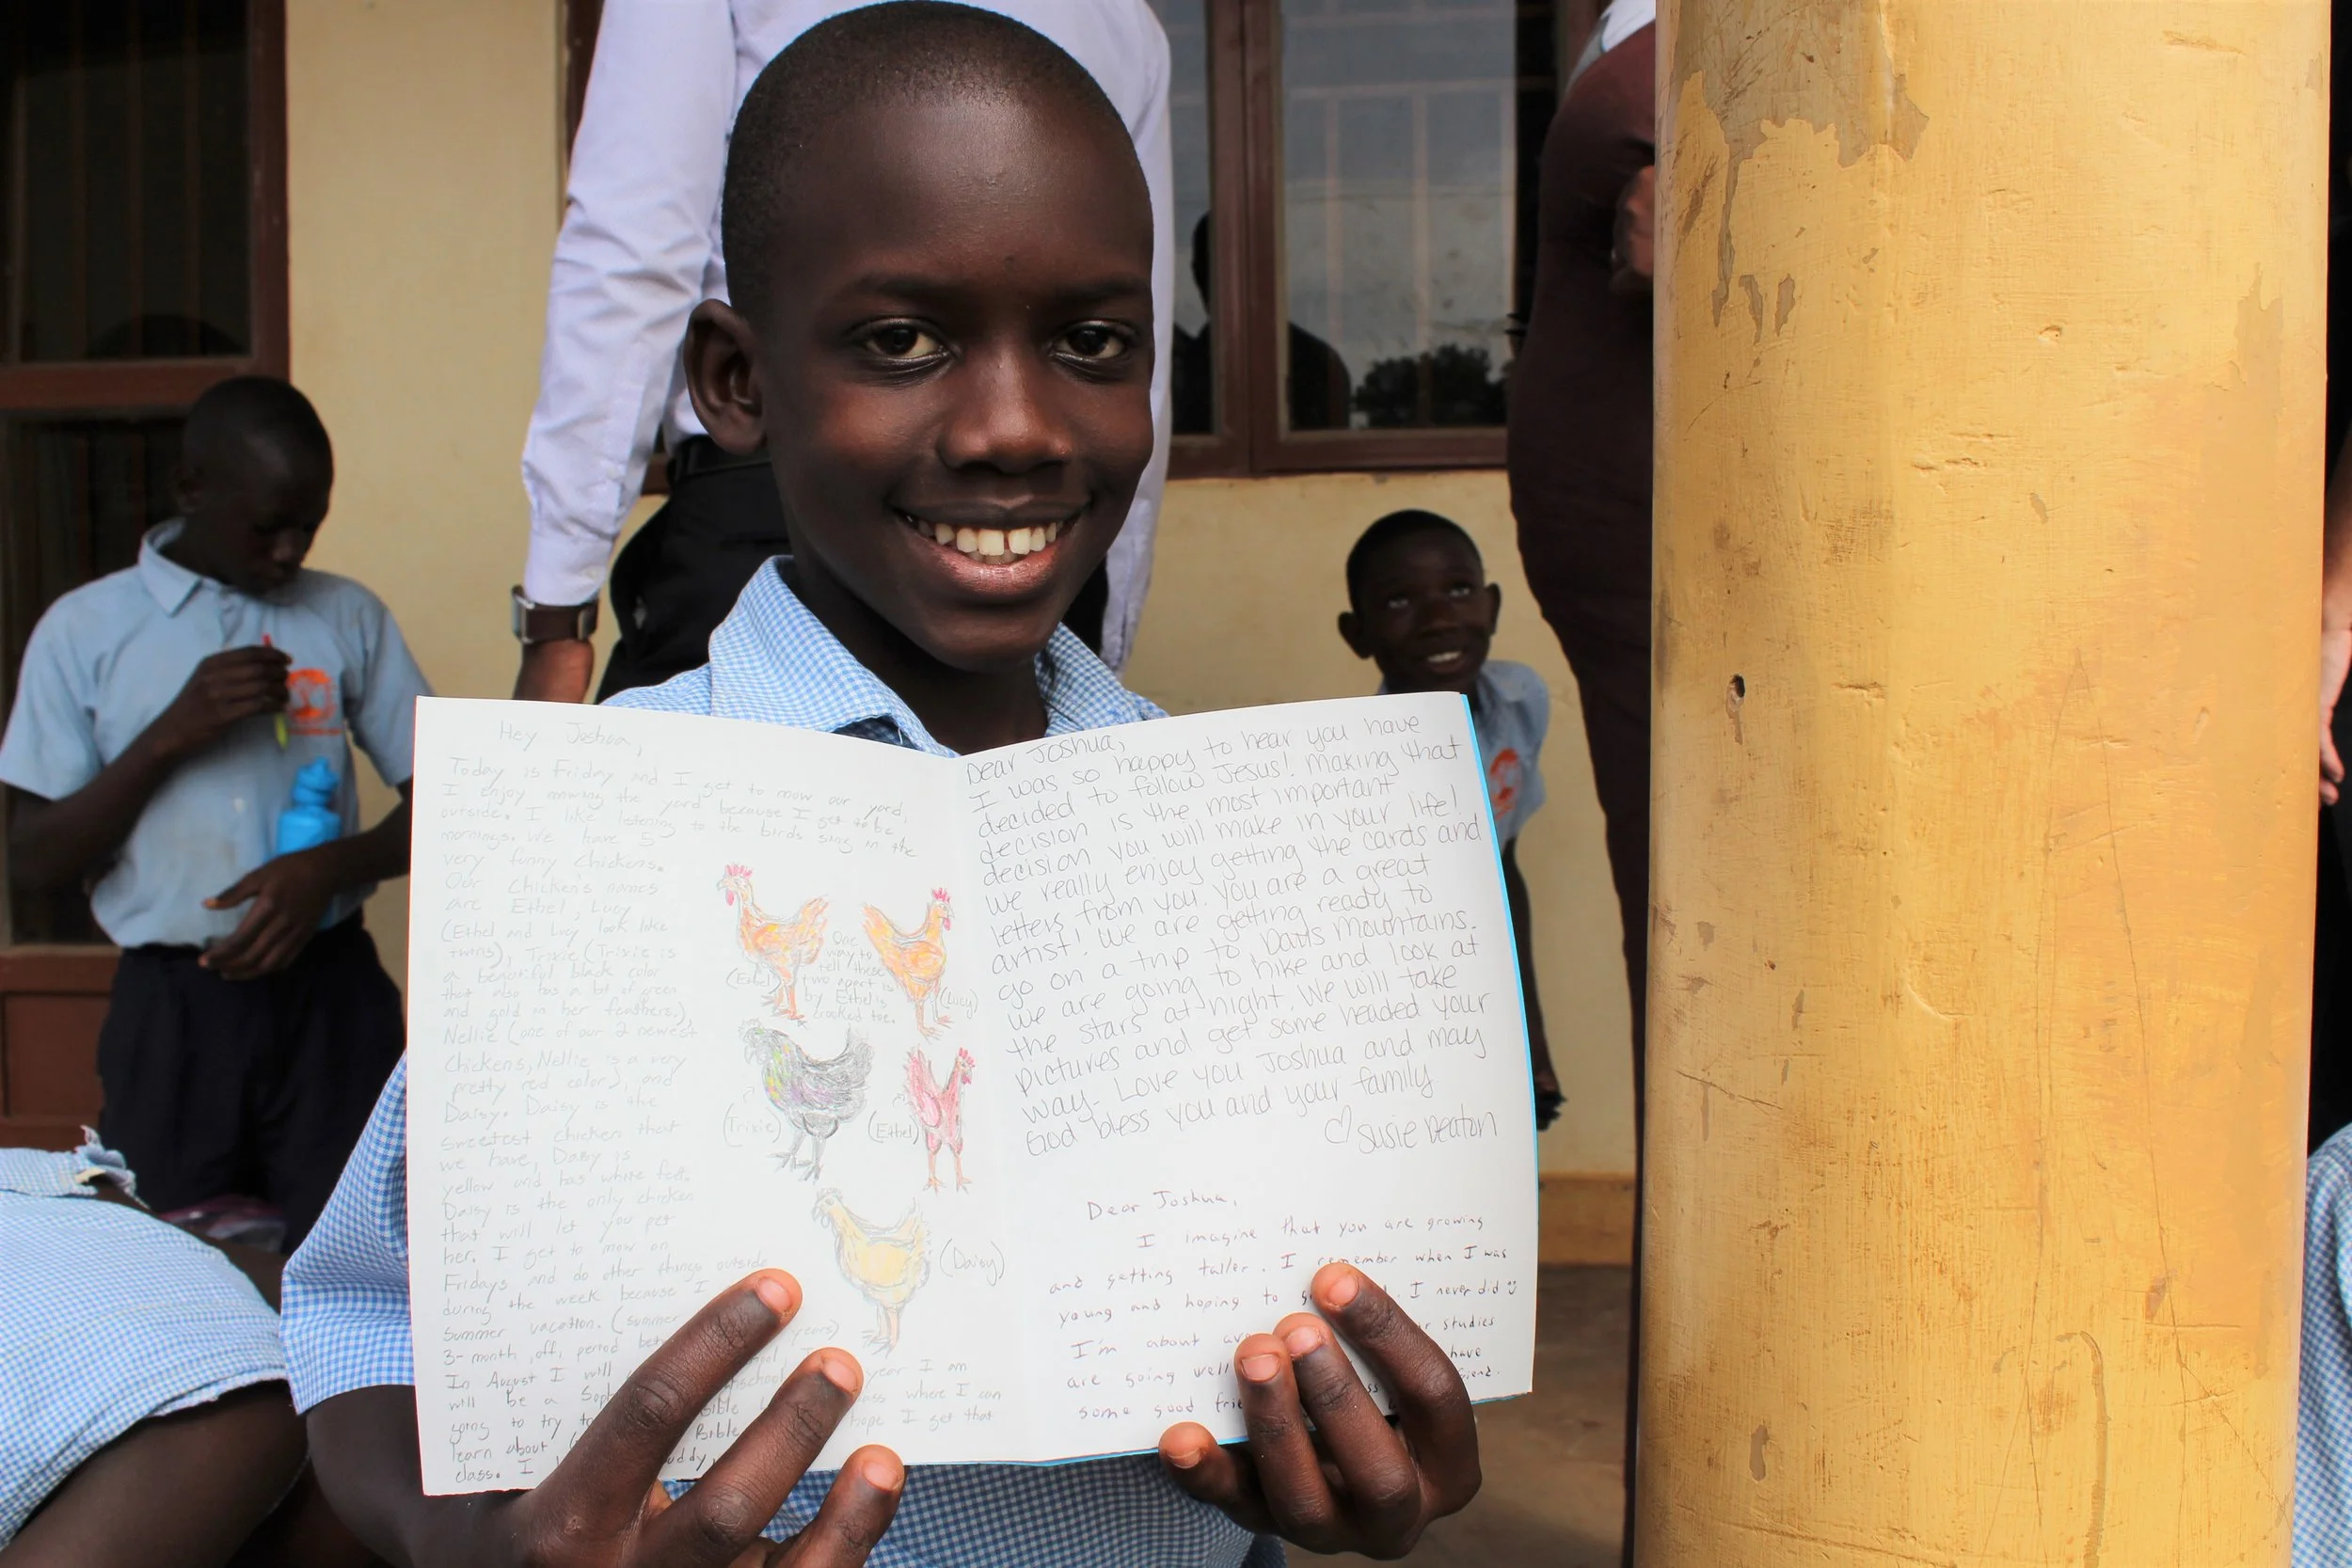 Hey Joshua,
Today is Friday and I get to mow our yard.
I enjoy mowing the yard because I get to be
outside. I like listening to the birds sing in the
mornings. We have 5
very funny chickens.
Our chicken's names
are Ethel, Lucy
(Ethel and Lucy look like
twins), Trixie (Trixie is
a beautiful black color
that also has a bit of green
and gold in her feathers.)
Nellie (one of our 2 newest
chickens, Nellie is a very
pretty red color), and
Daisy. Daisy is the
sweetest chicken that
we have, Daisy is
yellow and has white feet.
Daisy is the only chicken
that will let you pet
her. I get to mow on
Fridays and do other things outside
during the week because I
summer vacation. (summer
3-month off period bet years)
In August I will year I am
will be a Soph class where I can
going to try hope I get that
learn about Bible
class. I uddy,
(Ethel)
One
way to
tell these
two apart is
by Ethel's
crooked toe.
(Lucy)
(Trixie)
(Ethel)
(Daisy)
Dear Joshua,
I was so happy to hear you have
decided to follow Jesus! Making that
decision is the most important
decision you will make in your life!
We really enjoy getting the cards and
letters from you. You are a great
artist! We are getting ready to
go on a trip to Davis Mountains.
We are going to hike and look at
the stars at night. We will take
pictures and get some headed your
way. Love you Joshua and may
God bless you and your family
♡ Susie Deaton
Dear Joshua,
I imagine that you are growing
and getting taller. I remember when I was
young and hoping to I never did
I'm about studies
are going well have
some good friend.